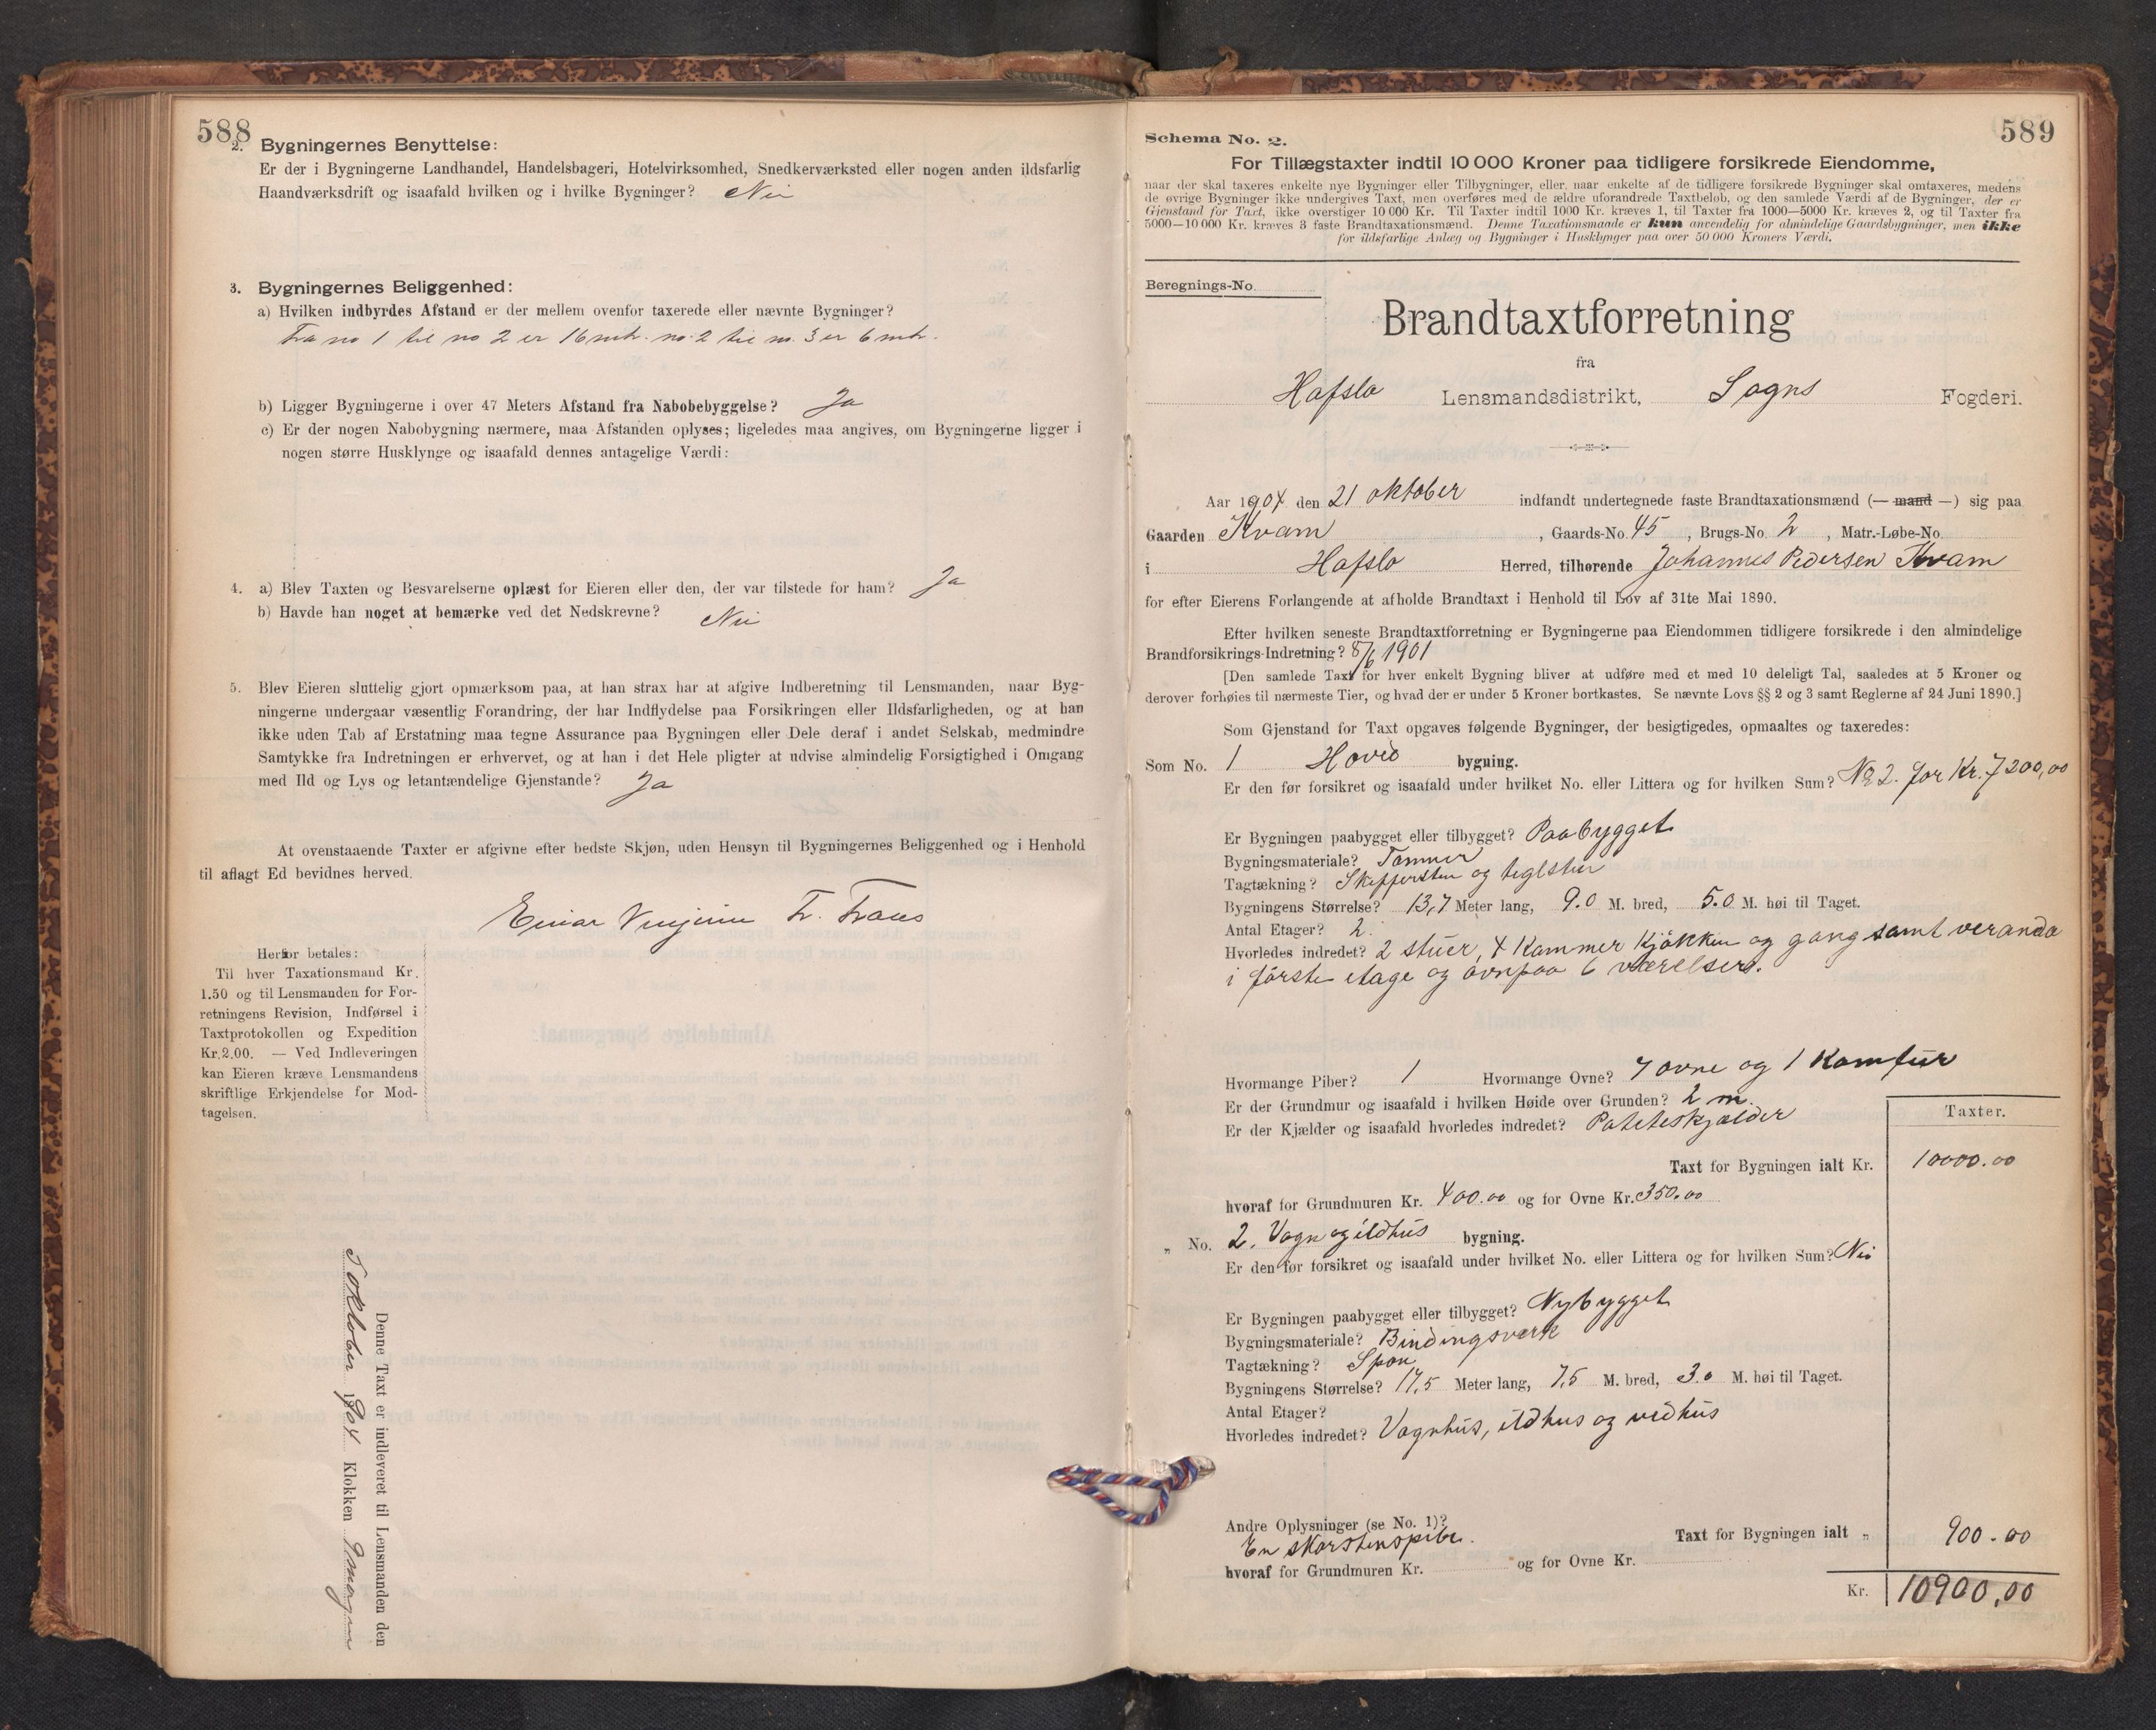 588
2. Bygningernes Benyttelse:
Er der i Bygningerne Landhandel, Handelsbageri, Hotelvirksomhed, Snedkerværksted eller nogen anden ildsfarlig
Haandværksdrift og isaafald hvilken og i hvilke Bygninger? Nei
3. Bygningernes Beliggenhed:
a) Hvilken indbyrdes Afstand er der mellem ovenfor taxerede eller nævnte Bygninger?
Fra no 1 til no 2 er 16 mtr. no. 2 til no. 3 er 6 mtr.
b) Ligger Bygningerne i over 47 Meters Afstand fra Nabobebyggelse? Ja
c) Er der nogen Nabobygning nærmere, maa Afstanden oplyses; ligeledes maa angives, om Bygningerne ligger i
nogen større Husklynge og isaafald dennes antagelige Værdi:
4. a) Blev Taxten og Besvarelserne oplæst for Eieren eller den, der var tilstede for ham? Ja
b) Havde han noget at bemærke ved det Nedskrevne? Nei
5. Blev Eieren sluttelig gjort opmærksom paa, at han strax har at afgive Indberetning til Lensmanden, naar Byg-
ningerne undergaar væsentlig Forandring, der har Indflydelse paa Forsikringen eller Ildsfarligheden, og at han
ikke uden Tab af Erstatning maa tegne Assurance paa Bygningen eller Dele deraf i andet Selskab, medmindre
Samtykke fra Indretningen er erhvervet, og at han i det Hele pligter at udvise almindelig Forsigtighed i Omgang
med Ild og Lys og letantændelige Gjenstande? Ja
At ovenstaaende Taxter er afgivne efter bedste Skjøn, uden Hensyn til Bygningernes Beliggenhed og i Henhold
til aflagt Ed bevidnes herved.
Einar
Herfor betales:
Til hver Taxationsmand Kr.
1.50 og til Lensmanden for For-
retningens Revision, Indførsel i
Taxtprotokollen og Expedition
Kr. 2.00. — Ved Indleveringen
kan Eieren kræve Lensmandens
skriftlige Erkjendelse for Mod-
tagelsen.
Denne Taxt er indleveret til Lensmanden den
oktober 1904 Klokken
589
Schema No. 2.
For Tillægstaxter indtil 10 000 Kroner paa tidligere forsikrede Eiendomme,
naar der skal taxeres enkelte nye Bygninger eller Tilbygninger, eller, naar enkelte af de tidligere forsikrede Bygninger skal omtaxeres, medens
de øvrige Bygninger ikke undergives Taxt, men overføres med de ældre uforandrede Taxtbeløb, og den samlede Værdi af de Bygninger, der er
Gjenstand for Taxt, ikke overstiger 10 000 Kr. Til Taxter indtil 1000 Kr. kræves 1, til Taxter fra 1000—5000 Kr. kræves 2, og til Taxter fra
5000—10 000 Kr. kræves 3 faste Brandtaxationsmænd. Denne Taxationsmaade er kun anvendelig for almindelige Gaardsbygninger, men ikke
for ildsfarlige Anlæg og Bygninger i Husklynger paa over 50 000 Kroners Værdi.
Beregnings-No.
Brandtaxtforretning
fra
Hafslo Lensmandsdistrikt, Sogns Fogderi.
Aar 1904 den 21 oktober indfandt undertegnede faste Brandtaxationsmænd (— mand —) sig paa
Gaarden Kvam, Gaards-No. 45, Brugs-No. 2, Matr.-Løbe-No.
i Hafslo Herred, tilhørende Johannes Pedersen Kvam
for efter Eierens Forlangende at afholde Brandtaxt i Henhold til Lov af 31te Mai 1890.
Efter hvilken seneste Brandtaxtforretning er Bygningerne paa Eiendommen tidligere forsikrede i den almindelige
Brandforsikrings-Indretning? 8/6 1901
[Den samlede Taxt for hver enkelt Bygning bliver at udføre med et med 10 deleligt Tal, saaledes at 5 Kroner og
derover forhøies til nærmeste Tier, og hvad der er under 5 Kroner bortkastes. Se nævnte Lovs §§ 2 og 3 samt Reglerne af 24 Juni 1890.]
Som Gjenstand for Taxt opgaves følgende Bygninger, der besigtigedes, opmaaltes og taxeredes:
Som No. 1 Hoved bygning.
Er den før forsikret og isaafald under hvilket No. eller Littera og for hvilken Sum? No 2. for Kr. 7200,00
Er Bygningen paabygget eller tilbygget? Paabygget
Bygningsmateriale? Tømmer
Tagtækning? Skiffersten og teglsten
Bygningens Størrelse? 13,7 Meter lang, 9.0 M. bred, 5.0 M. høi til Taget.
Antal Etager? 2.
Hvorledes indredet? 2 stuer, 4 Kammer Kjøkken og gang samt veranda
i første etage og ovnpaa 6 værelser.
Hvormange Piber? 1 Hvormange Ovne? 7 ovne og 1 Komfur
Er der Grundmur og isaafald i hvilken Høide over Grunden? 2 m.
Er der Kjælder og isaafald hvorledes indredet? Poteteskjælder
Taxter.
Taxt for Bygningen ialt Kr. 10000.00
hvoraf for Grundmuren Kr. 400.00 og for Ovne Kr. 350.00
„ No. 2. Vogn og ildhus bygning.
Er den før forsikret og isaafald under hvilket No. eller Littera og for hvilken Sum? Nei
Er Bygningen paabygget eller tilbygget? Nybygget
Bygningsmateriale? Bindingsværk
Tagtækning? Spon
Bygningens Størrelse? 17,5 Meter lang, 7,5 M. bred, 3.0 M. høi til Taget.
Antal Etager?
Hvorledes indredet? Vognhus, ildhus og vedhus
Andre Oplysninger (se No. 1)?
En skorstenspibe. Taxt for Bygningen ialt „ 900.00
hvoraf for Grundmuren Kr. og for Ovne Kr.
Kr. 10900,00